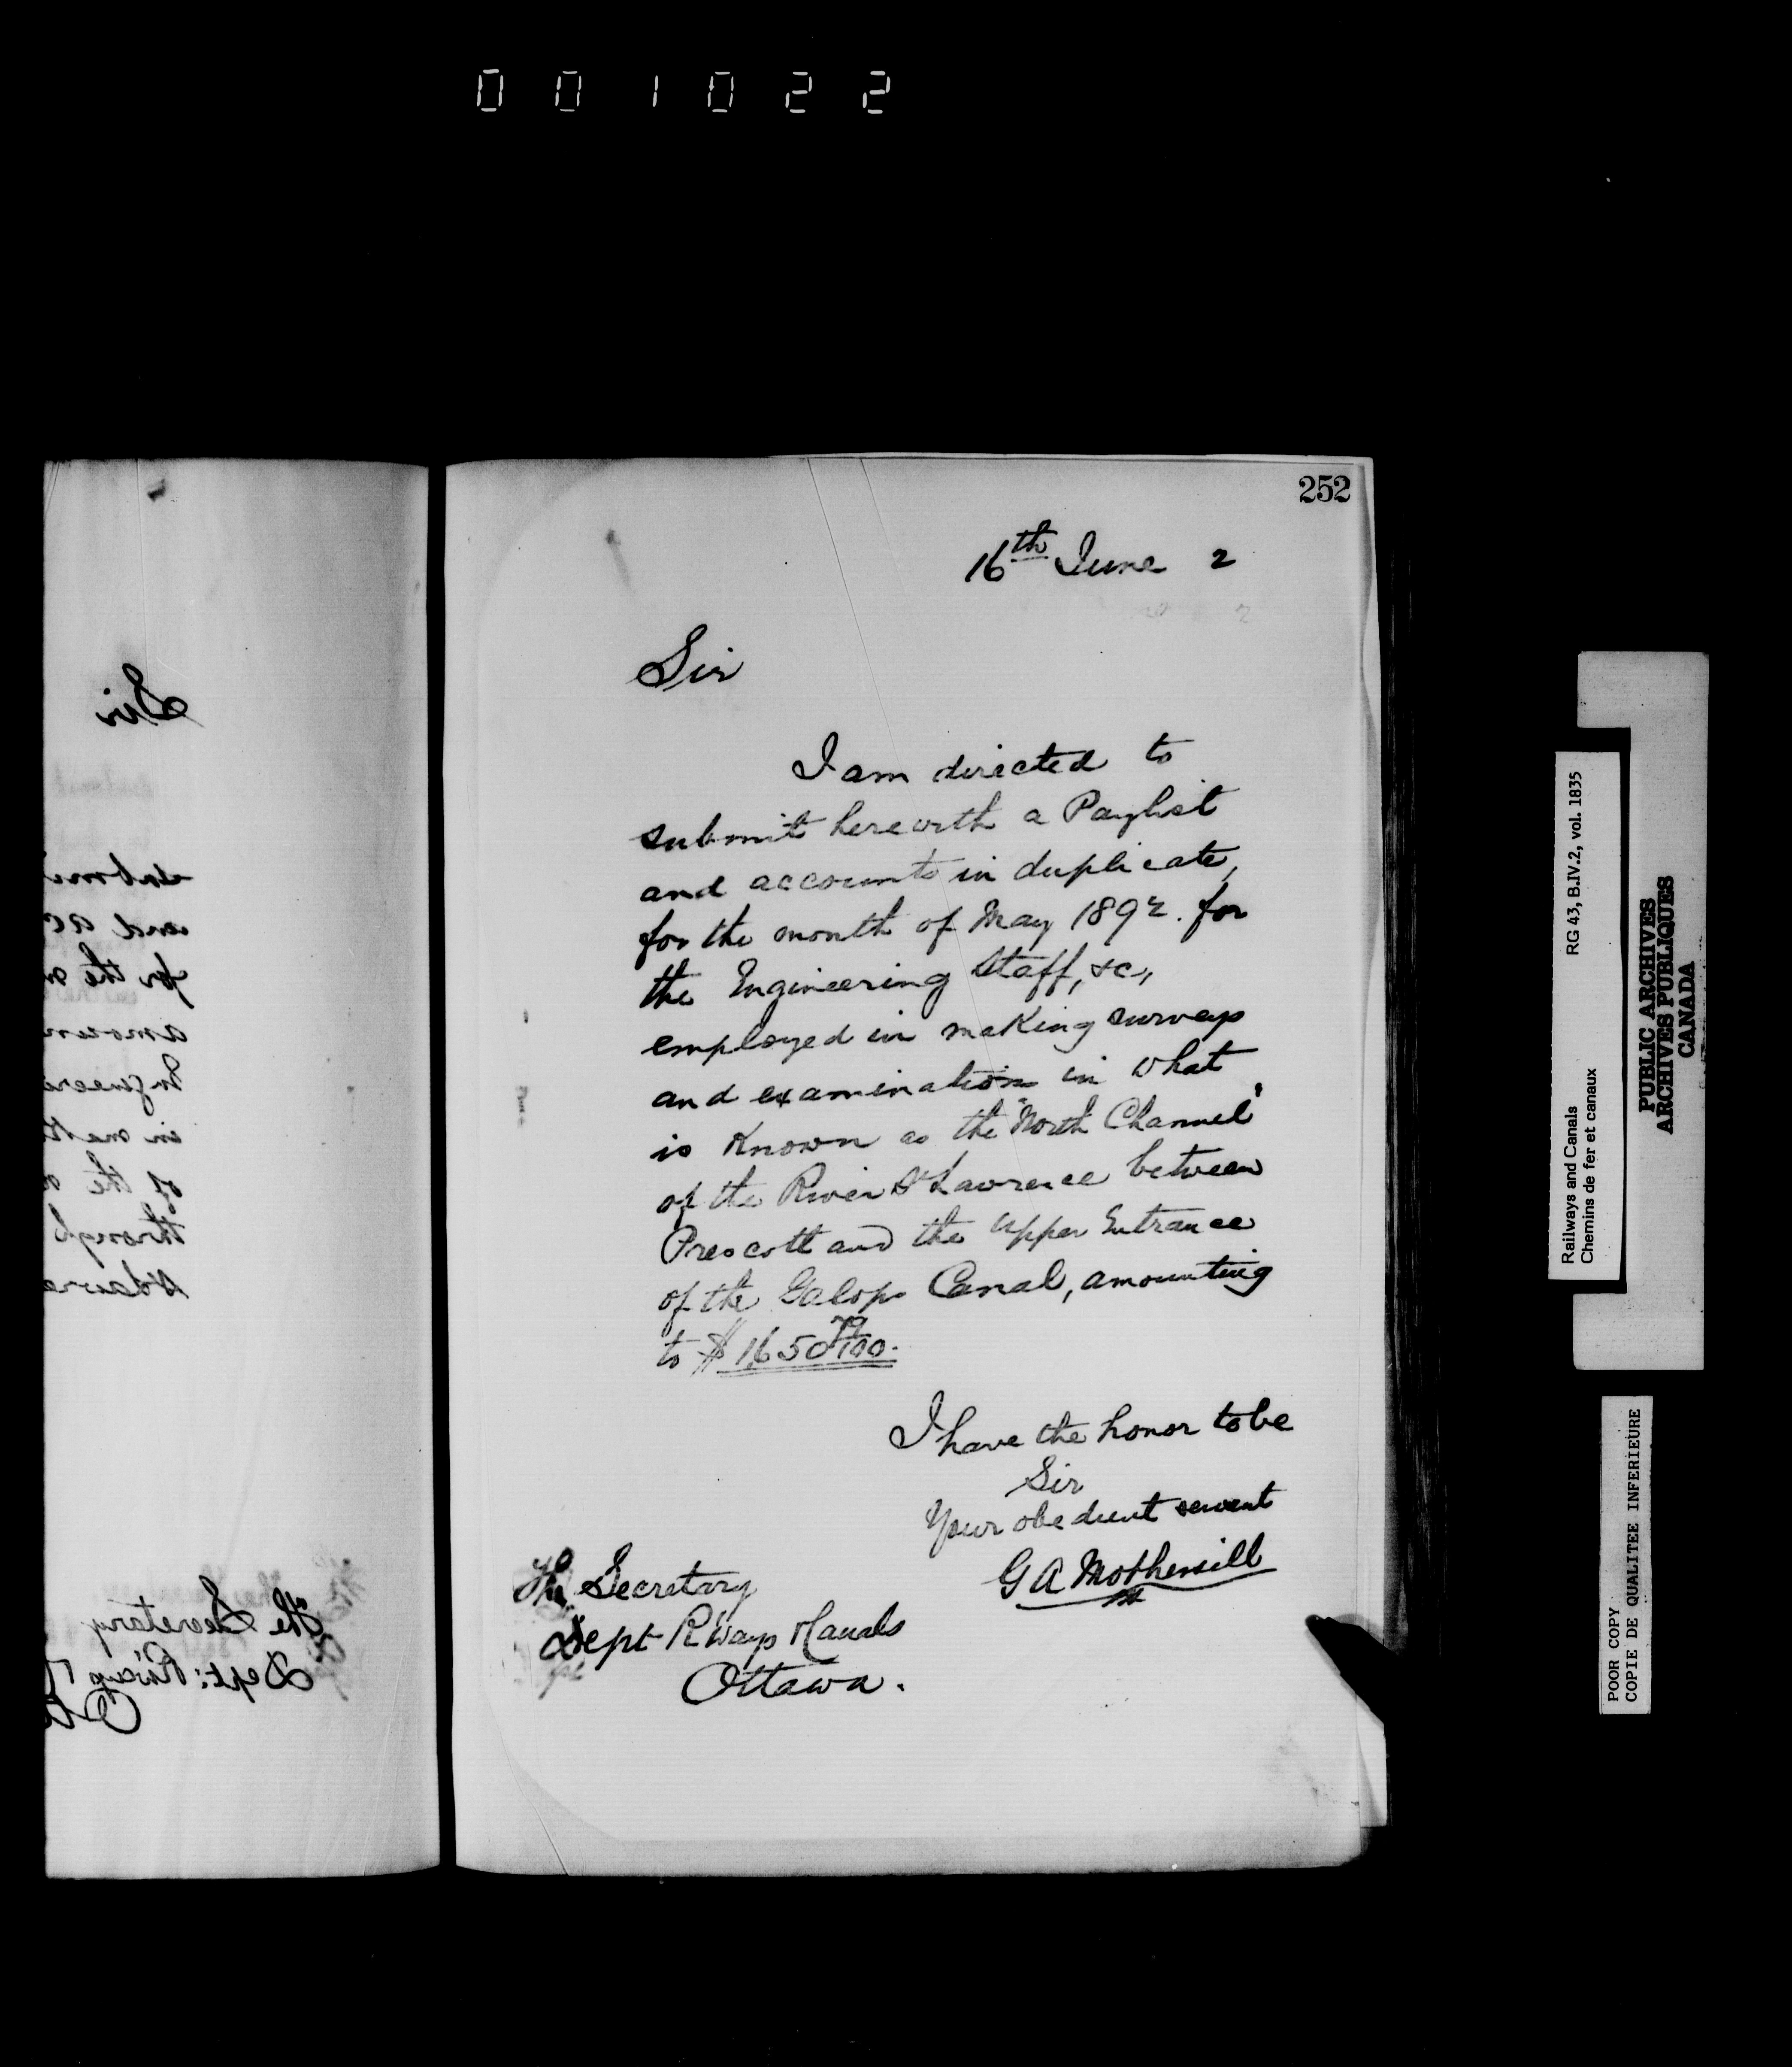 001022
252
16th June 2
Sir
I am directed to
submit herewith a Paylist
and accounts in duplicate,
for the month of May 1892. for
the Engineering Staff, &c.,
employed in making surveys
and examinations in what
is Known as the "North Channel"
of the River St Lawrence between
Prescott and the upper Entrance
of the Galops Canal, amounting
to $1650 79/100.
I have the honor to be
Sir
Your obedient servant
G A Mothersill
The Secretary
Dept R'Ways & Canals
Ottawa.
Sir
submi
and ac
for the m
amoun
Engineeri
in mak
of the
through
St Lawre
The Secretary
Dept: R'ways
Railways and Canals
Chemins de fer et canaux
RG 43, B.IV.2, vol. 1835
PUBLIC ARCHIVES
ARCHIVES PUBLIQUES
CANADA
POOR COPY
COPIE DE QUALITEE INFERIEURE